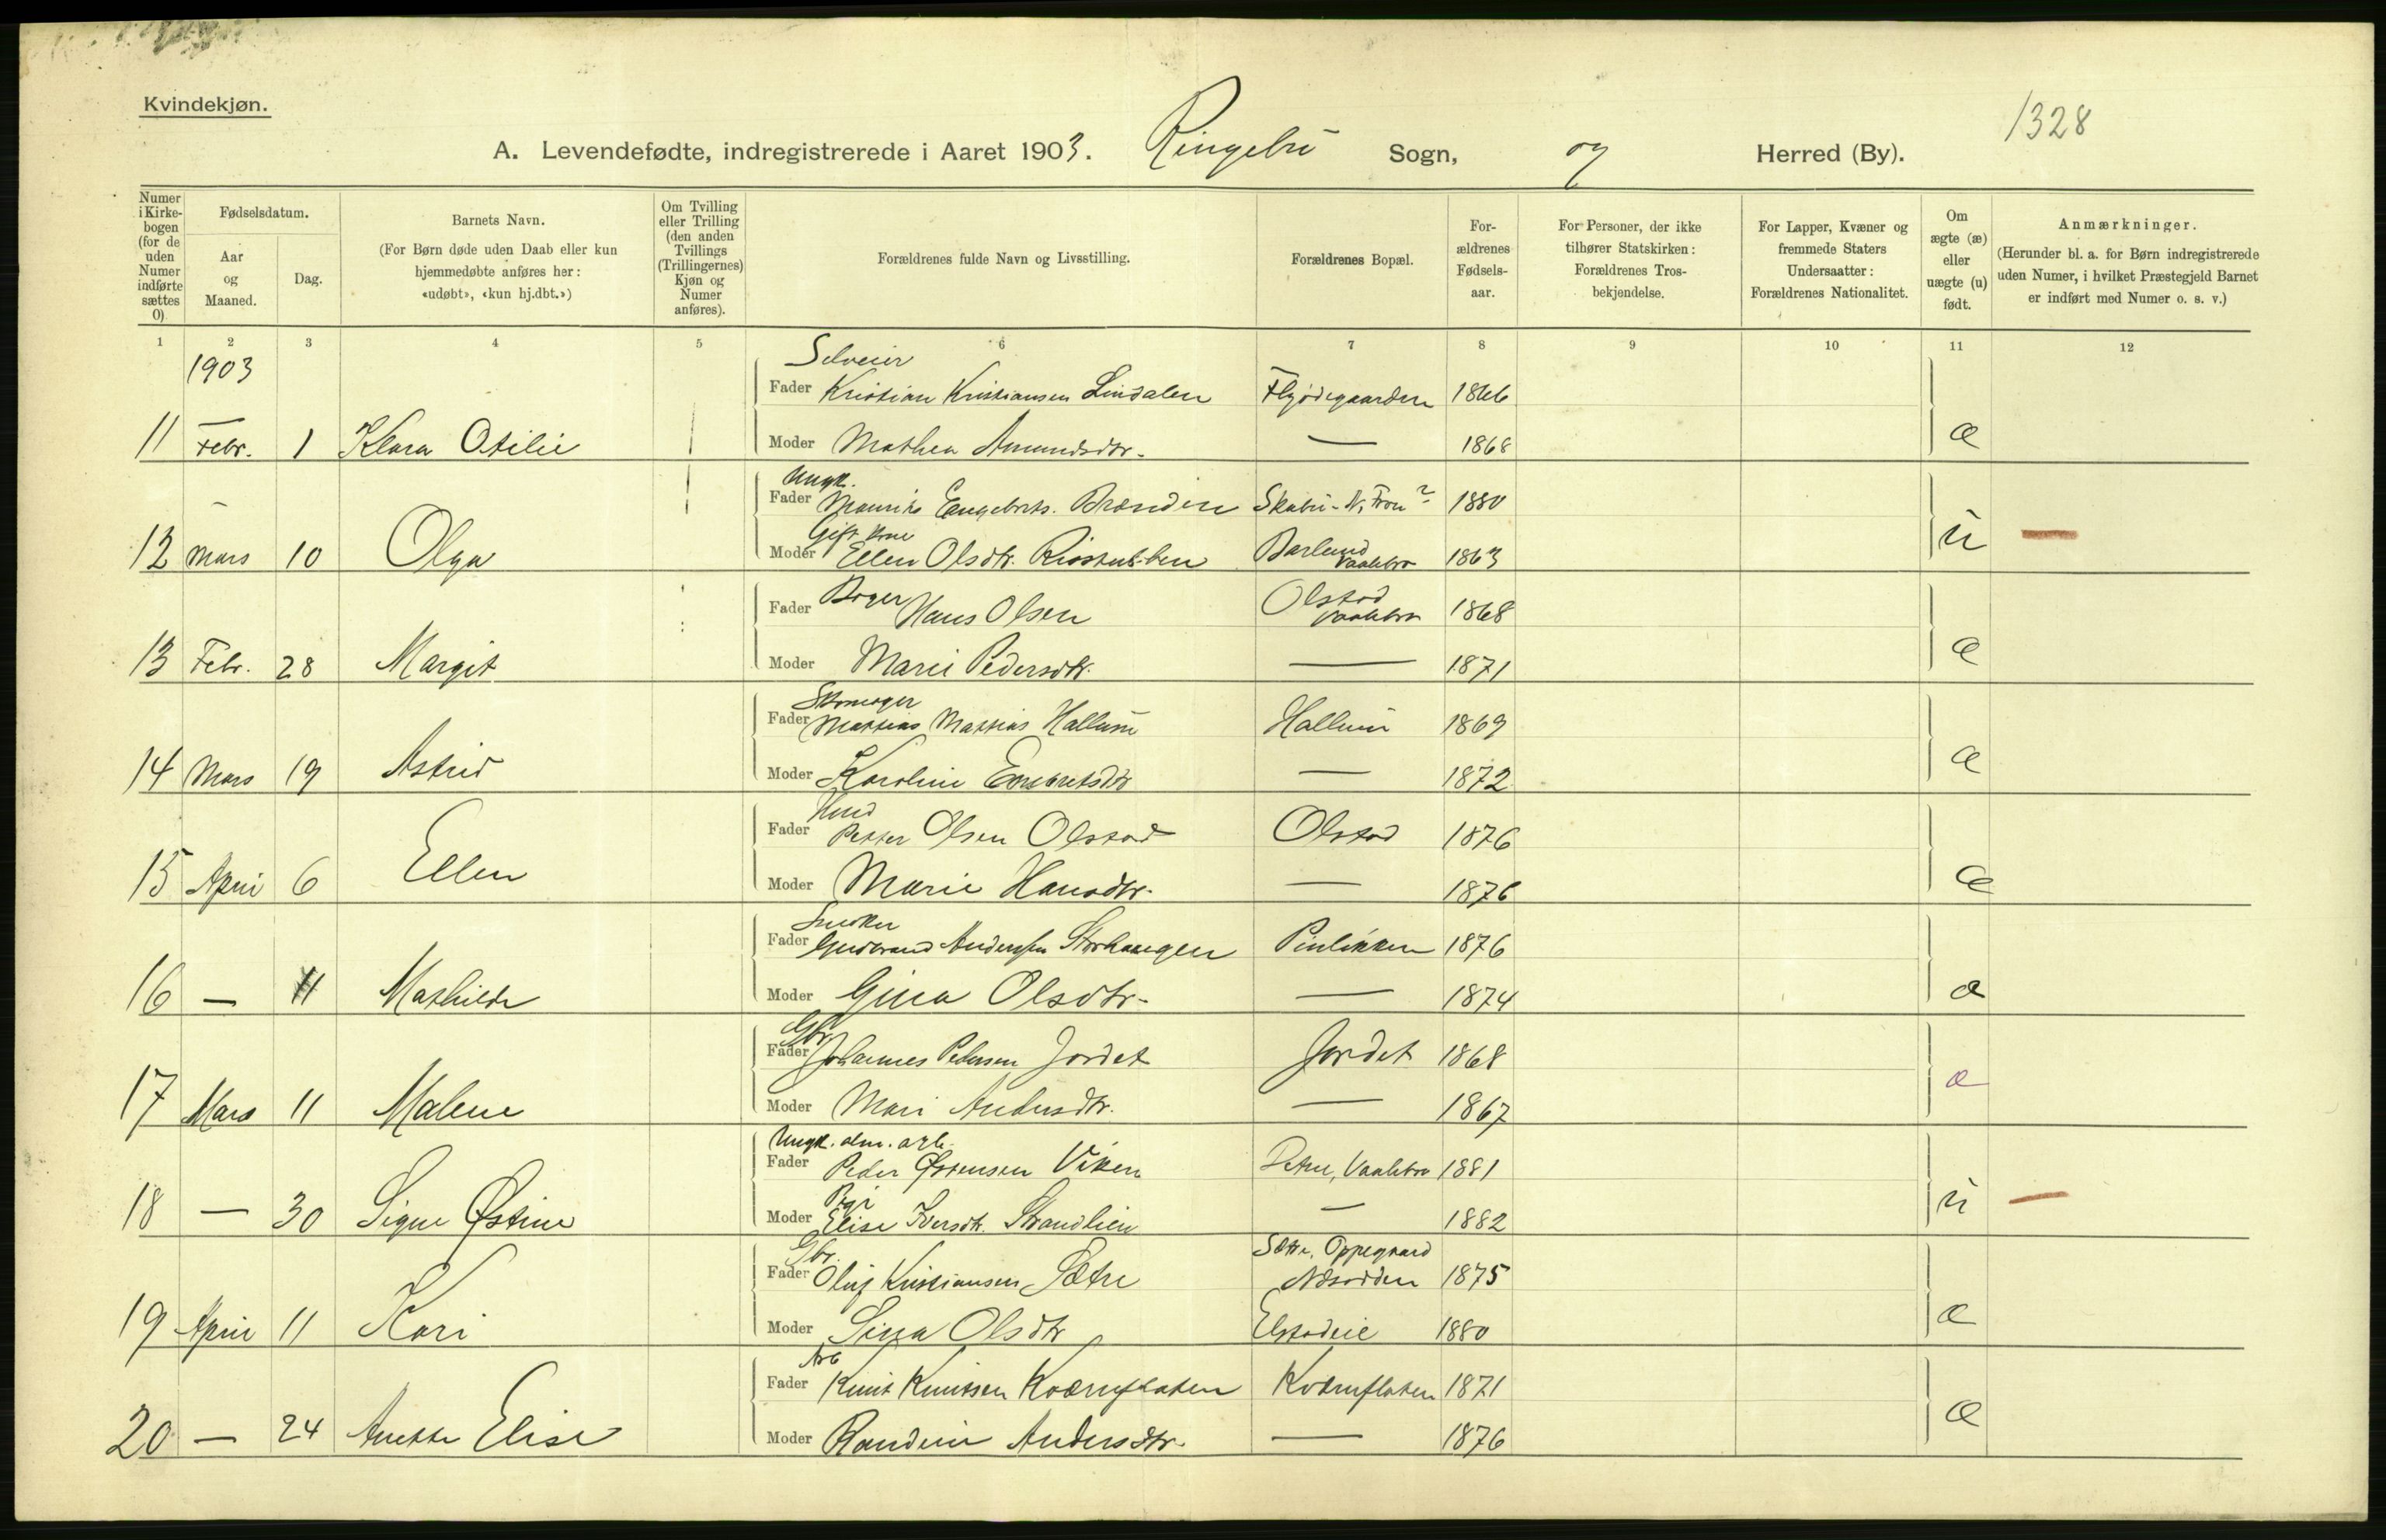 Kvindekjøn.
1328
A. Levendefødte, indregistrerede i Aaret 1903. Ringebu Sogn, og Herred (By).
Numer i Kirkebogen (for de uden Numer indførte sættes 0)
Fødselsdatum.
Aar og Maaned.
Dag.
Barnets Navn.
(For Børn døde uden Daab eller kun hjemmedøbte anføres her: «udøbt», «kun hj.dbt.»)
Om Tvilling eller Trilling (den anden Tvillings (Trillingernes) Kjøn og Numer anføres).
Forældrenes fulde Navn og Livsstilling.
Forældrenes Bopæl.
Forældrenes Fødselsaar.
For Personer, der ikke tilhører Statskirken: Forældrenes Trosbekjendelse.
For Lapper, Kvæner og fremmede Staters Undersaatter: Forældrenes Nationalitet.
Om ægte (æ) eller uægte (u) født.
Anmærkninger.
(Herunder bl. a. for Børn indregistrerede uden Numer, i hvilket Præstegjeld Barnet er indført med Numer o. s. v.)
1 2 3 4 5 6 7 8 9 10 11 12
1903
Selveier
Fader Kristian Kristiansen Lindalen Flyødegaarden 1866
11 Febr. 1 Klara Otilie Moder Mathea Amundsdtr. — 1868 æ
Ungk.
Fader Maurits Engebrets. Brænden Skabu - N. Fron ? 1880
Gift Kone
12 Mars 10 Olga Moder Ellen Olsdtr. Risstubben Barlund Vaalebro 1863 u —
Fader Bager Hans Olsen Olstad Vaalebro 1868
13 Febr. 28 Margit Moder Marie Pedersdtr. — 1871 æ
Skomager
Fader Mattias Mattias Hallum Hallum 1869
14 Mars 19 Astrid Moder Karoline Engebretsdtr — 1872 æ
Fader Petter Olsen Olstad Olstad 1876
15 April 6 Ellen Moder Marie Hansdtr. — 1876 æ
Snedker
Fader Gudbrand Andersen Storhaugen Pinlikken 1876
16 — 11 Mathilde Moder Gina Olsdtr. — 1874 æ
Gbr
Fader Johannes Pedersen Jordet Jordet 1868
17 Mars 11 Malene Moder Mari Andersdtr. — 1867 æ
Ungk. alm. arb.
Fader Peder Østensen Viken Sætre, Vaalebro 1881
Pige
18 — 30 Signe Østine Moder Elise Iversdtr. Strandlien — 1882 u —
Gbr. Sætre, Oppegaard
Fader Oluf Kristiansen Sætre Næsodden 1875
19 April 11 Kari Moder Sina Olsdtr Elstadeie 1880 æ
Arb
Fader Knut Knutsen Kværnflaten Kværnflaten 1871
20 — 24 Anette Elise Moder Randine Andersdtr. — 1876 æ